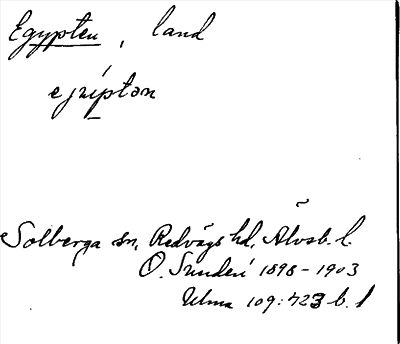 Egypten, land
ejíptən
Solberga sn, Redvägs hd, Älvsb. l.
O. Sundén 1898-1903
Ulma 109:423 b. 1